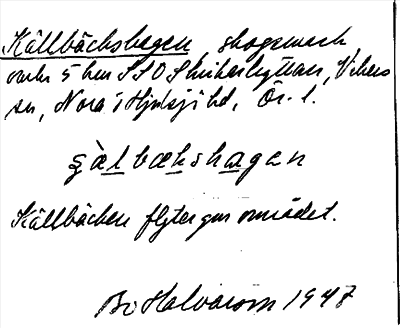 Källbäckshagen, skogsmark
omkr 5 hm SSO Skrikarhyttan, Vikers
sn, Nora o Hjulsjö bd, Ör. l.
çàlbækshagen
Källbäcken flyter gm området.
Bo Halvarson 1947